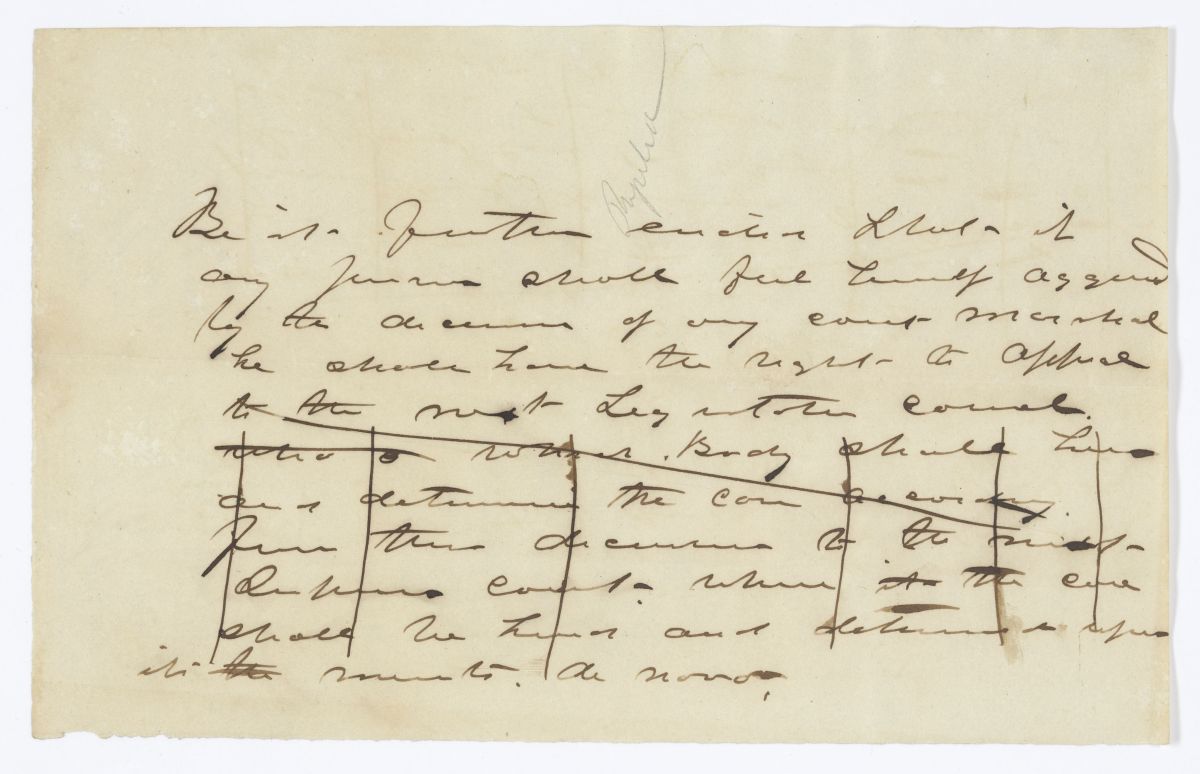 Rejected
Be it further enacted that if
any person shall feel himself aggrieved
by the decision of any court marshal
he shall have the right to appeal
to the next Legislative council.
who which Body shall hear
and determine the case according
from their decision to the next
Supreme court. where it the case
shall be heard and determined upon
its the merits. de novo,